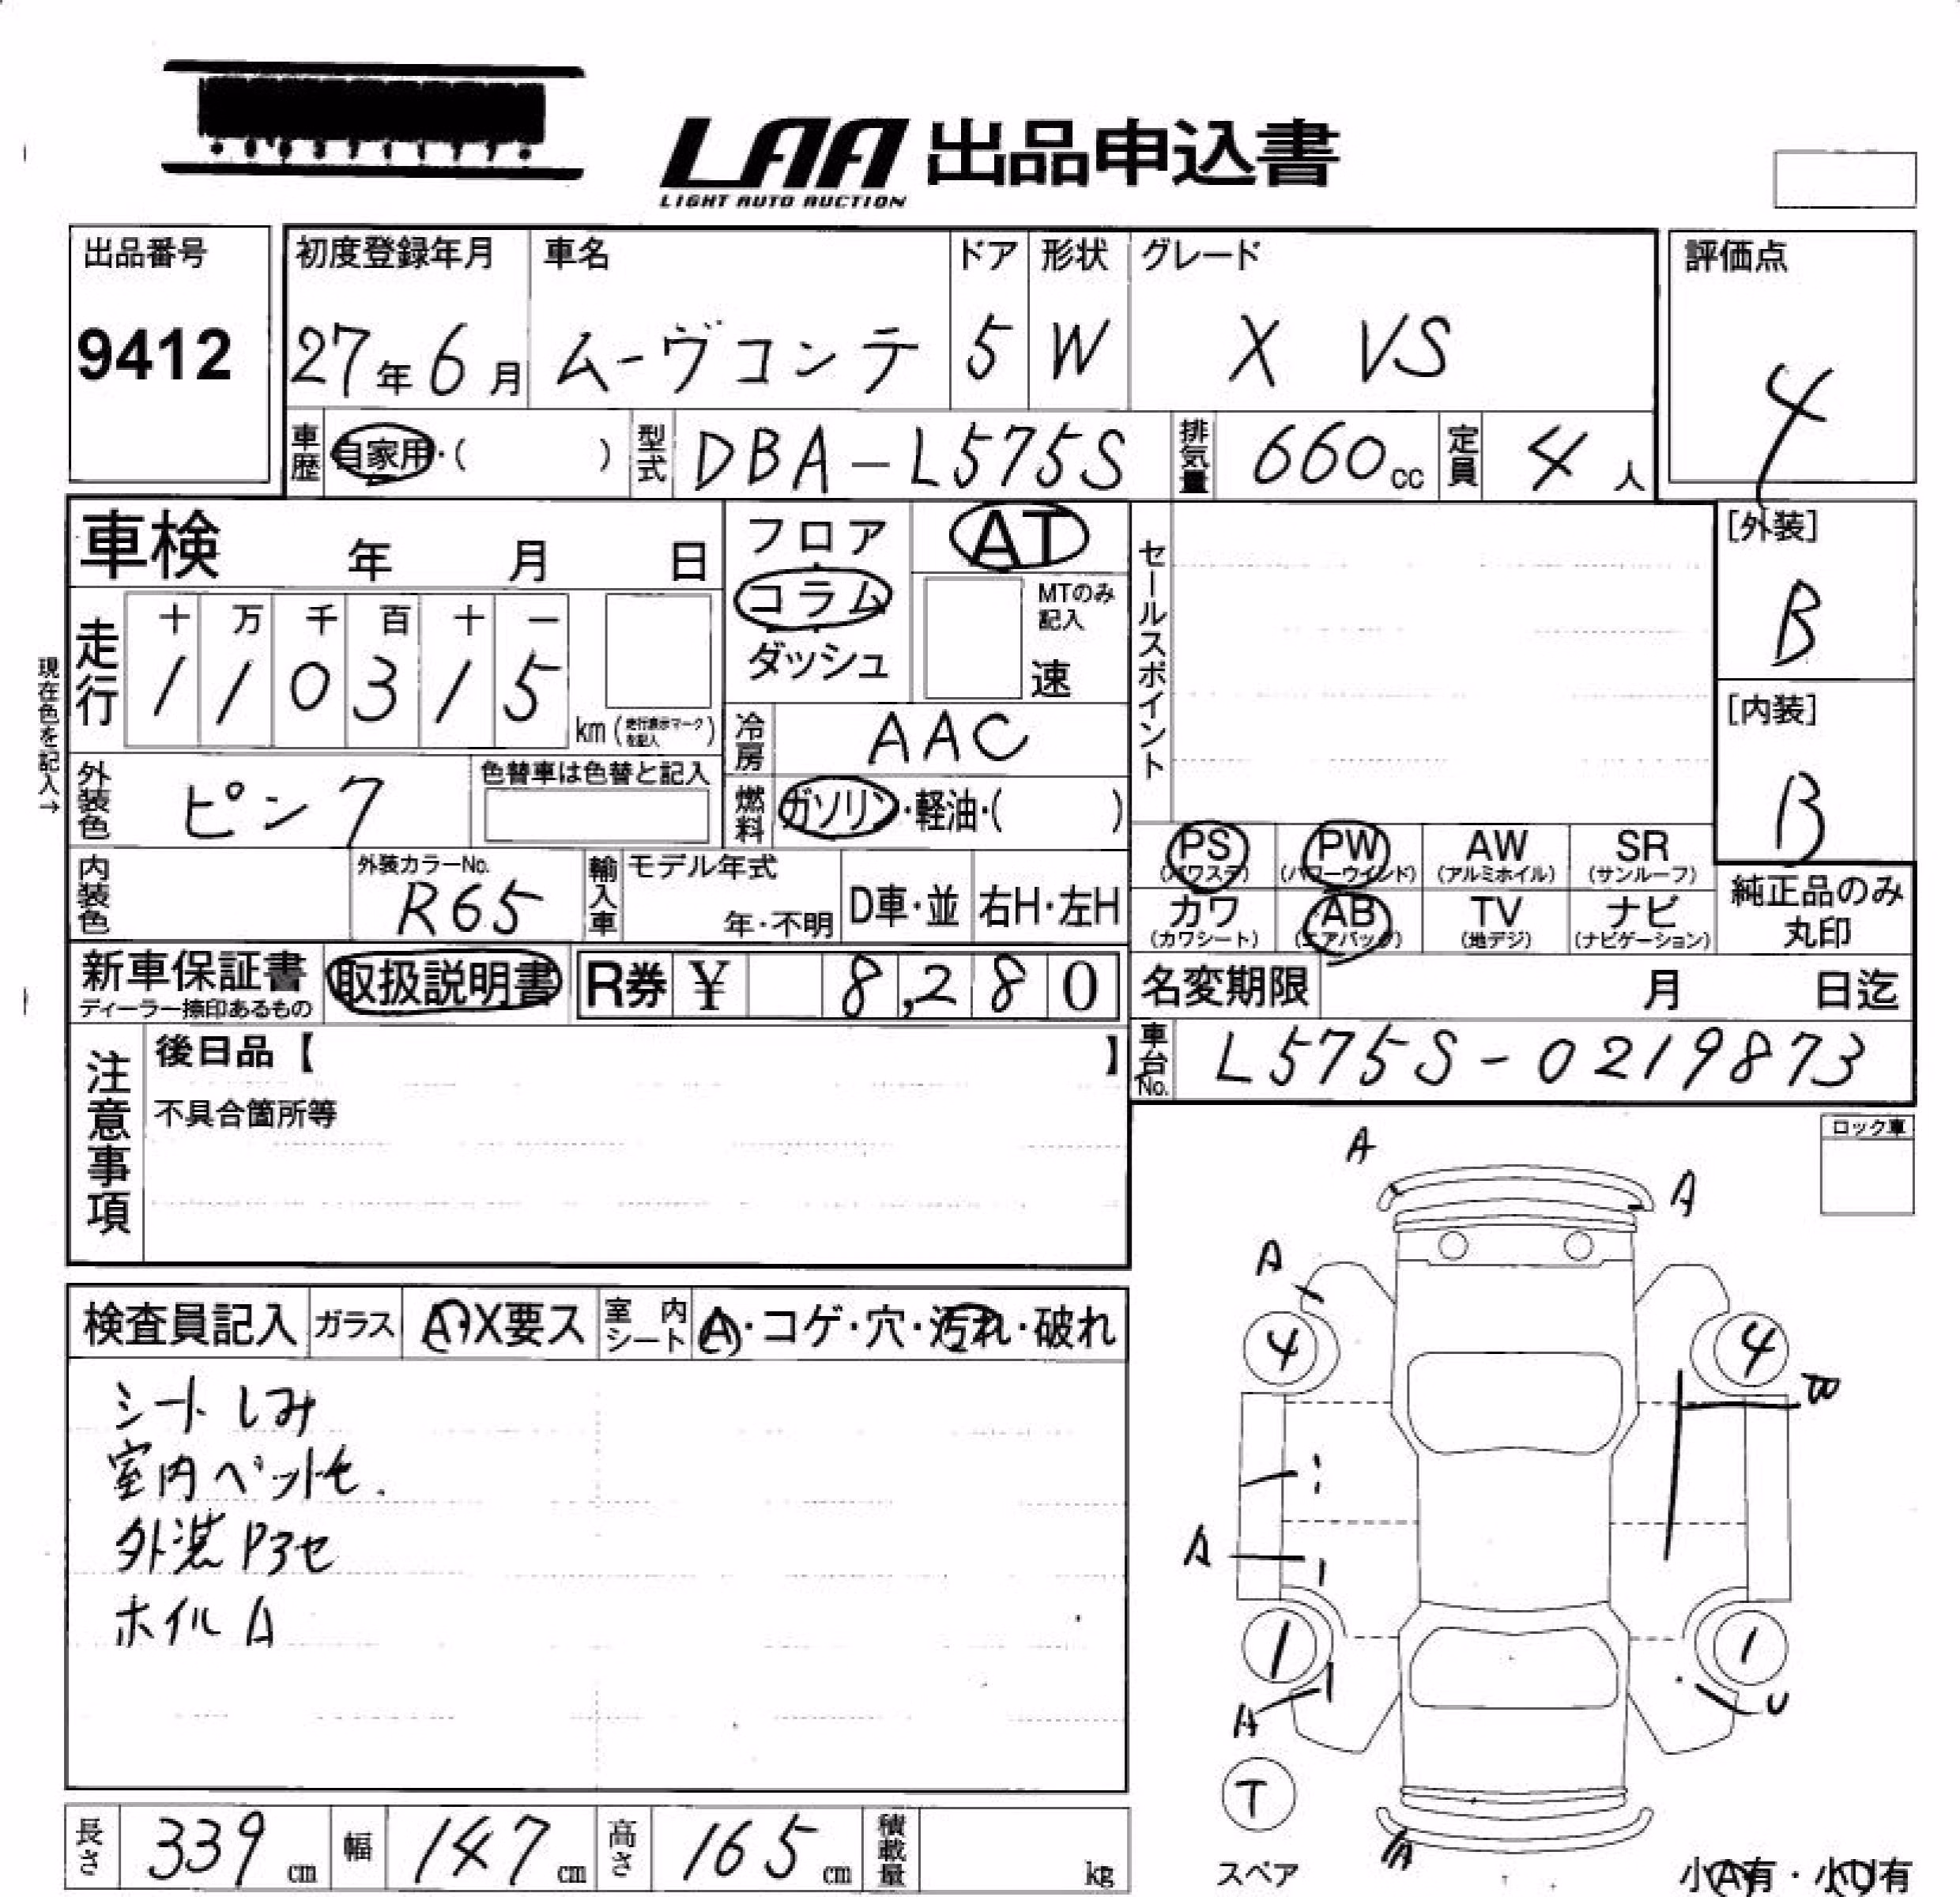 LAA 出品申込書
LIGHT AUTO AUCTION
出品番号
9412
初度登録年月 車名 ドア 形状 グレード
27年6月 ムーヴコンテ 5 W X VS
評価点
4
車歴 自家用・( ) 型式 DBA-L575S 排気量 660cc 定員 4人
車検 年 月 日
フロア
コラム
ダッシュ
AT
MTのみ
記入
速
セールスポイント
[外装]
B
[内装]
B
現在色を記入→
走行 十 万 千 百 十 一
1 1 0 3 1 5
km (走行表示マークを記入)
冷房 AAC
外装色 ピンク 色替車は色替と記入
燃料 ガソリン・軽油・( )
内装色 外装カラーNo.
R65
輸入車 モデル年式
年・不明 D車・並 右H・左H
PS PW AW SR
(パワステ) (パワーウインド) (アルミホイル) (サンルーフ)
カワ AB TV ナビ
(カワシート) (エアバッグ) (地デジ) (ナビゲーション)
純正品のみ
丸印
新車保証書
ディーラー捺印あるもの
取扱説明書 R券 ¥ 8,280
名変期限 月 日迄
車台No. L575S-0219873
注意事項
後日品【 】
不具合箇所等
ロック車
検査員記入 ガラス A・X要ス 室内シート A・コゲ・穴・汚れ・破れ
シートしみ
室内ペット毛.
外装
ホイルA
A
A
A
4 4
A
1 1
A U
T
A
スペア
小A有・小U有
長さ 339cm 幅 147cm 高さ 165cm 積載量 kg